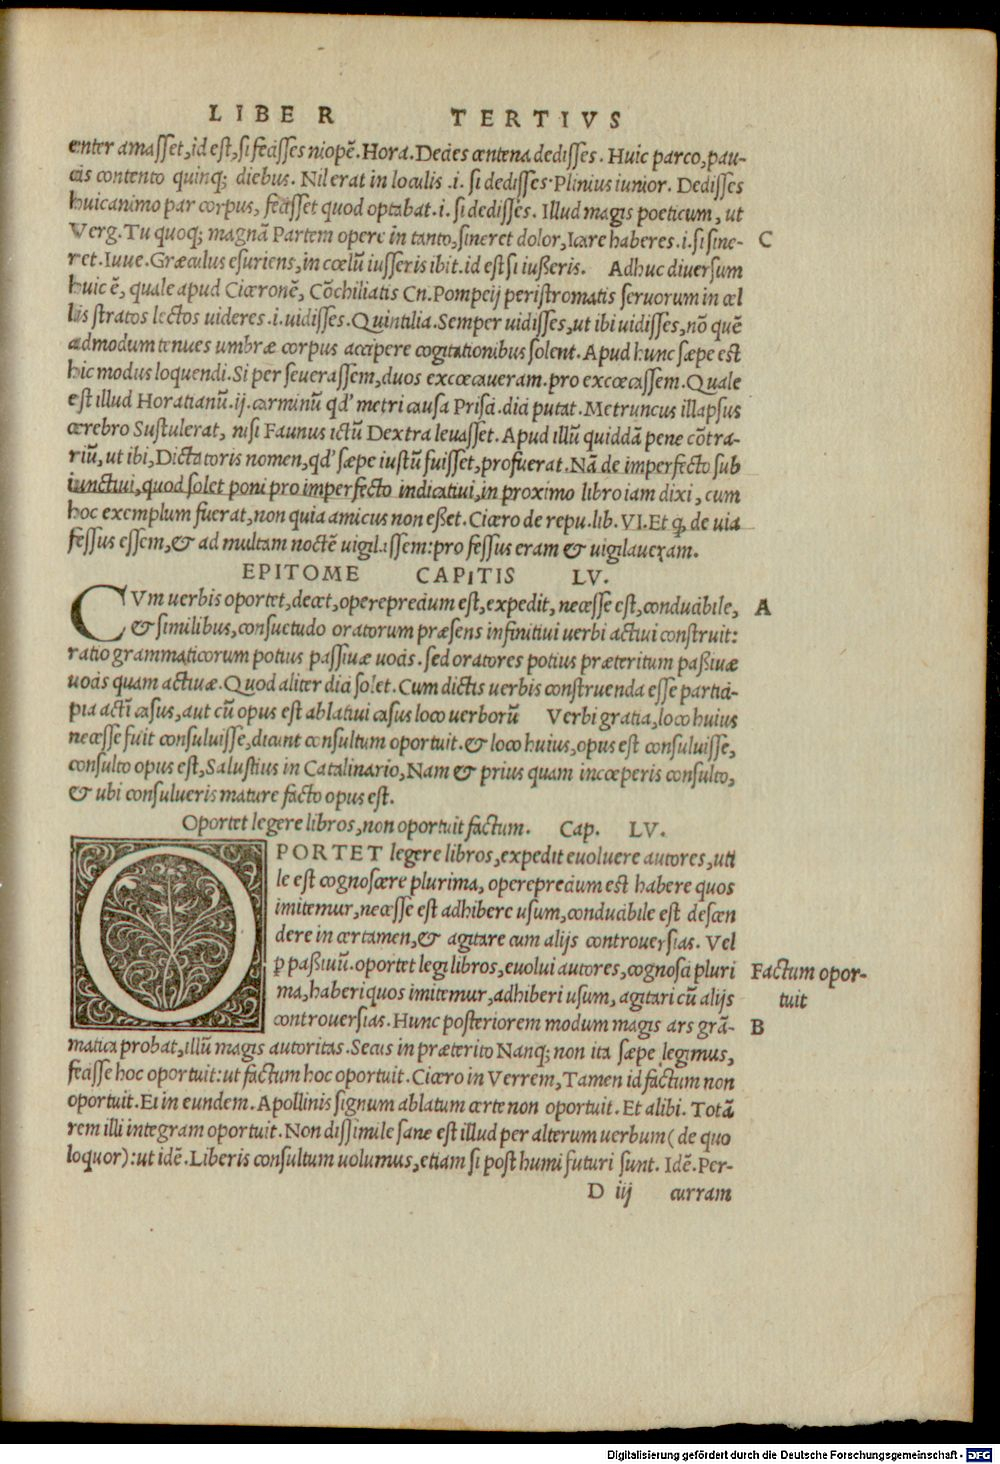 LIBER TERTIVS
enter amasset, id est, si fecisses niopē. Hora. Decies centena dedisses. Huic parco, pau-
cis contento quinq; diebus. Nil erat in loculis .i. si dedisses. Plinius iunior. Dedisses
huic animo par corpus, fecisset quod optabat .i. si dedisses. Illud magis poeticum, ut
Verg. Tu quoq; magnā Partem opere in tanto, sineret dolor, Icare haberes .i. si sine-
C
ret. Iuue. Græculus esuriens, in cœlū iusseris ibit. id est si iusseris. Adhuc diuersum
huic ē, quale apud Ciceronē, Cōchiliatis Cn. Pompeij peristromatis seruorum in cel
lis stratos lectos uideres .i. uidisses. Quintilia. Semper uidisses, ut ibi uidisses, nō quē
admodum tenues umbræ corpus accipere cogitationibus solent. Apud hunc sæpe est
hic modus loquendi. Si perseuerassem, duos excœcaueram. pro excœcassem. Quale
est illud Horatianū. ij. carminū qd' metri causa Prisci. dici putat. Me truncus illapsus
cerebro Sustulerat, nisi Faunus ictū Dextra leuasset. Apud illū quiddā pene cōtra-
riū, ut ibi, Dictatoris nomen, qd' sæpe iustū fuisset, profuerat. Nā de imperfecto sub
iunctiui, quod solet poni pro imperfecto indicatiui, in proximo libro iam dixi, cum
hoc exemplum fuerat, non quia amicus non esset. Cicero de repu. lib. VI. Et q, de uia
fessus essem, & ad multam noctē uigilassem: pro fessus eram & uigilaueram.
EPITOME CAPITIS LV.
CVm uerbis oportet, decet, operepretium est, expedit, necesse est, conducibile,
A
& similibus, consuetudo oratorum præsens infinitiui uerbi actiui construit:
ratio grammaticorum potius passiuæ uocis. sed oratores potius præteritum passiuæ
uocis quam actiuæ. Quod aliter dici solet. Cum dictis uerbis construenda esse partici-
pia acti casus, aut cū opus est ablatiui casus loco uerborū Verbi gratia, loco huius
necesse fuit consuluisse, dicunt consultum oportuit. & loco huius, opus est consuluisse,
consulto opus est, Salustius in Catalinario, Nam & prius quam incœperis consulto,
& ubi consulueris mature facto opus est.
Oportet legere libros, non oportuit factum. Cap. LV.
OPORTET legere libros, expedit euoluere autores, uti
le est cognoscere plurima, operepretium est habere quos
imitemur, necesse est adhibere usum, conducibile est descen
dere in certamen, & agitare cum alijs controuersias. Vel
p passiuū. oportet legi libros, euolui autores, cognosci pluri
Factum opor-
tuit
ma, haberi quos imitemur, adhiberi usum, agitari cū alijs
controuersias. Hunc posteriorem modum magis ars grā-
B
matica probat, illū magis autoritas. Secus in præterito Nanq; non ita sæpe legimus,
fecisse hoc oportuit: ut factum hoc oportuit. Cicero in Verrem, Tamen id factum non
oportuit. Et in eundem. Apollinis signum ablatum certe non oportuit. Et alibi. Totā
rem illi integram oportuit. Non dissimile sane est illud per alterum uerbum (de quo
loquor): ut idē. Liberis consultum uolumus, etiam si posthumi futuri sunt. Idē. Per-
D iij curram
Digitalisierung gefördert durch die Deutsche Forschungsgemeinschaft - DFG